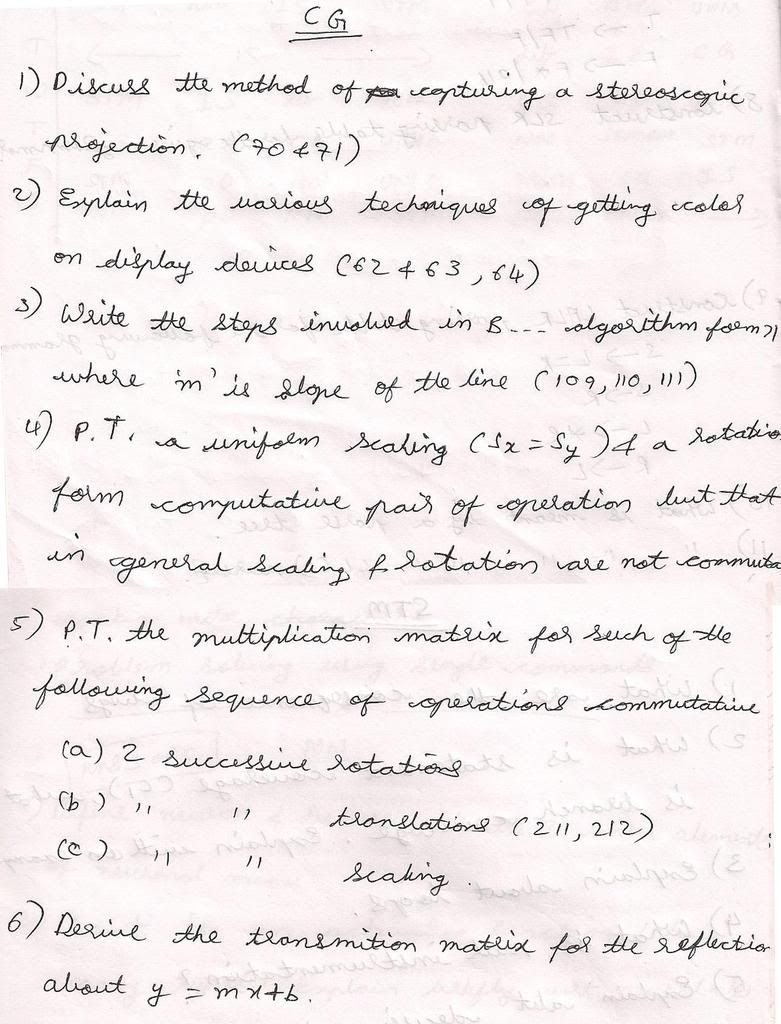 CG
1) Discuss the method of capturing a stereoscopic
projection. (70 & 71)
2) Explain the various techniques of getting color
on display devices (62 & 63, 64)
3) Write the steps involved in B--- algorithm form
where 'm' is slope of the line (109, 110, 111)
4) P.T. a uniform scaling (Sx = Sy) & a rotatio
form computative pair of operation but that
in general scaling & rotation are not commuta
5) P.T. the multiplication matrix for such of the
following sequence of operations commutative
(a) 2 successive rotations
(b) " " translations (211, 212)
(c) " " scaling.
6) Derive the transmition matrix for the reflection
about y = mx+b.